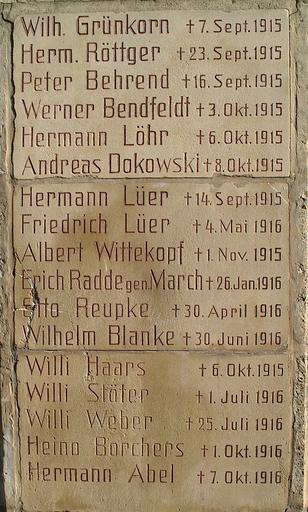 Wilh. Grünkorn † 7. Sept. 1915
Herm. Röttger † 23. Sept. 1915
Peter Behrend † 16. Sept. 1915
Werner Bendfeldt † 3. Okt. 1915
Hermann Löhr † 6. Okt. 1915
Andreas Dokowski † 8. Okt. 1915
Hermann Lüer † 14. Sept. 1915
Friedrich Lüer † 4. Mai 1916
Albert Wittekopf † 1. Nov. 1915
Erich Radde gen. March † 26. Jan. 1916
Otto Reupke † 30. April 1916
Wilhelm Blanke † 30. Juni 1916
Willi Haars † 6. Okt. 1915
Willi Stöter † 1. Juli 1916
Willi Weber † 25. Juli 1916
Heino Borchers † 1. Okt. 1916
Hermann Abel † 7. Okt. 1916